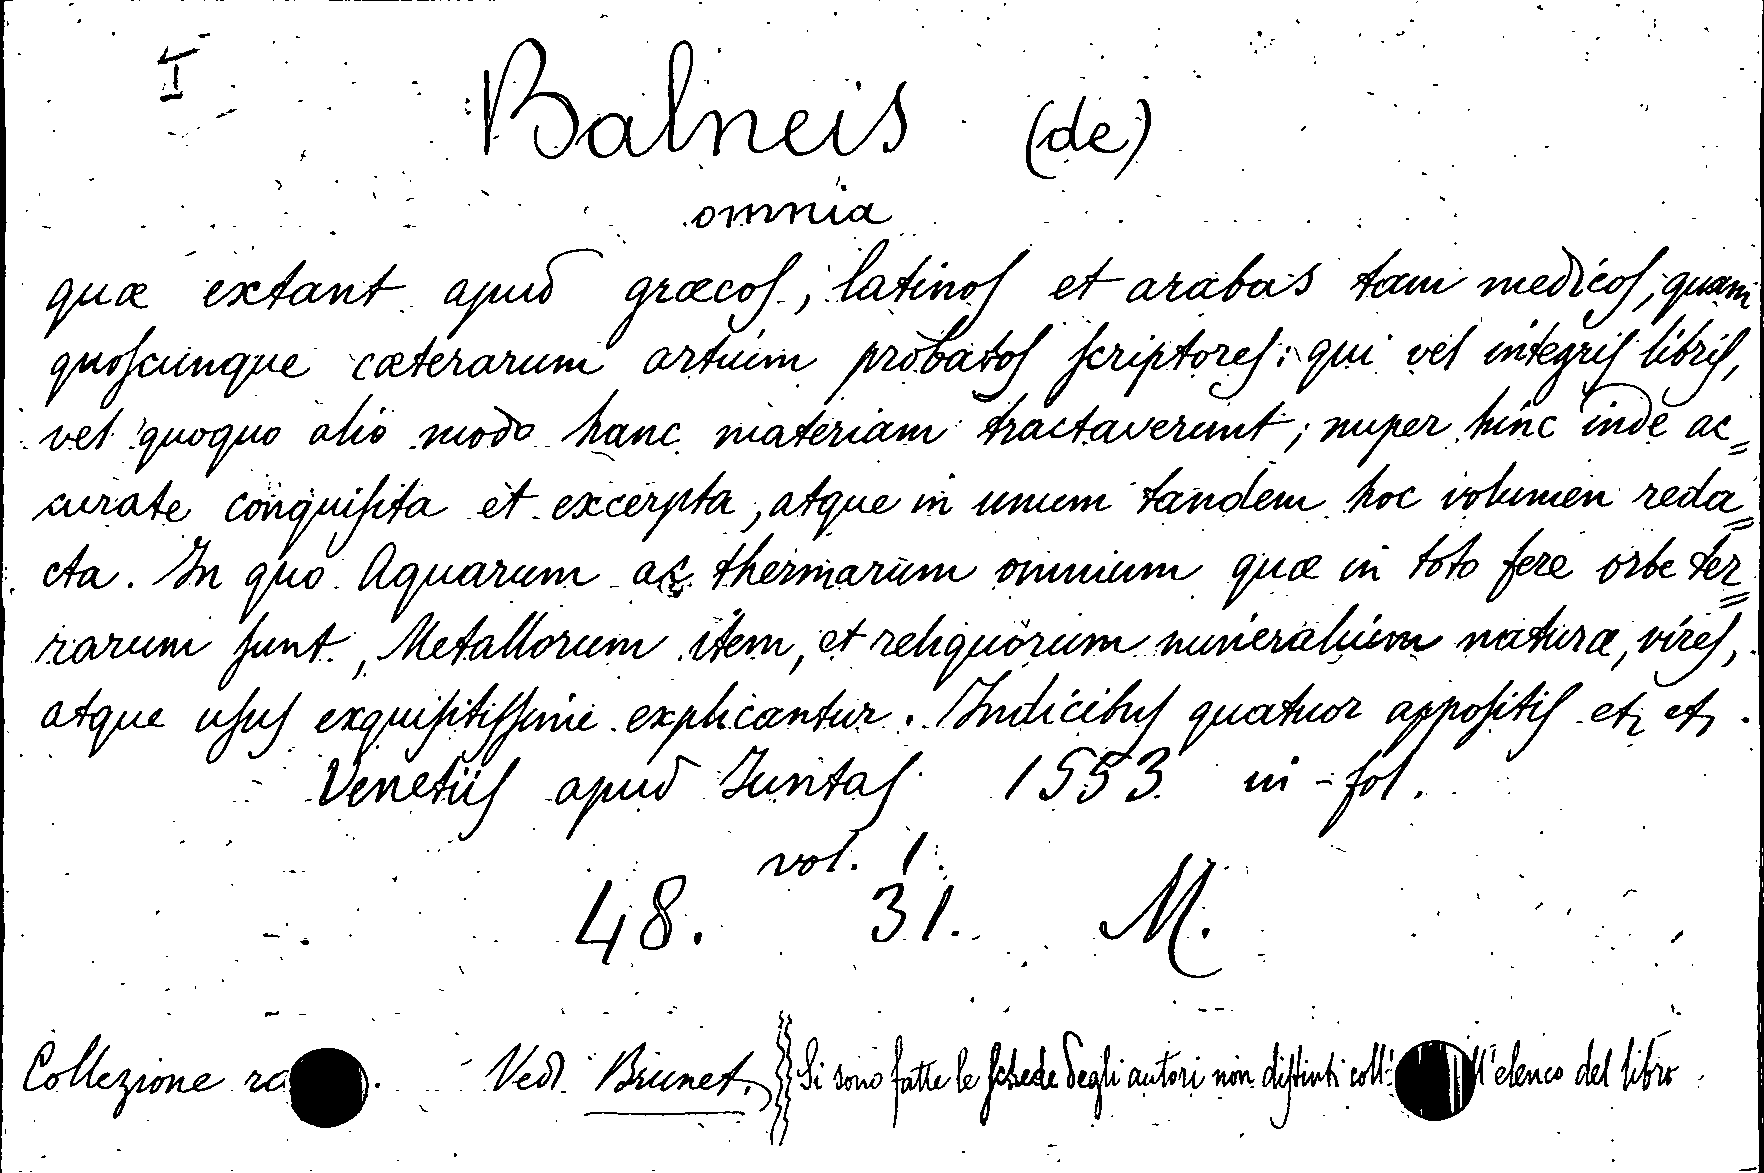 I
Balneis (de)
omnia
quæ extant apud græcos, latinos et arabas tam medicos, quam
quoscunque cæterarum artium probatos scriptores: qui vel integris libris,
vel quoquo alio modo hanc materiam tractaverunt; nuper hinc inde ac=
curate conquisita et excerpta, atque in unum tandem hoc volumen reda=
cta. In quo Aquarum ac thermarum omnium quæ in toto fere orbe ter=
rarum sunt, Metallorum item, et reliquorum mineralium naturæ, vires,
atque usus exquisitissime explicantur. Indicibus quatuor appositis etc etc.
Venetiis apud Juntas 1553 in-fol.
vol. 1.
48. 31. M.
Collezione Vedi Brunet. Si sono fatte le schede degli autori non distinti coll' elenco del libro